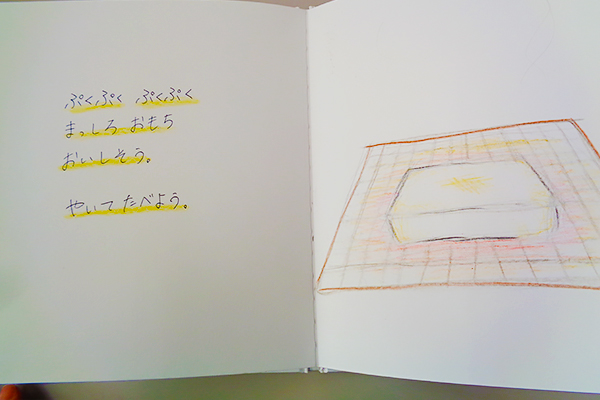 ぷくぷく ぷくぷく
まっしろ おもち
おいしそう。
やいて たべよう。